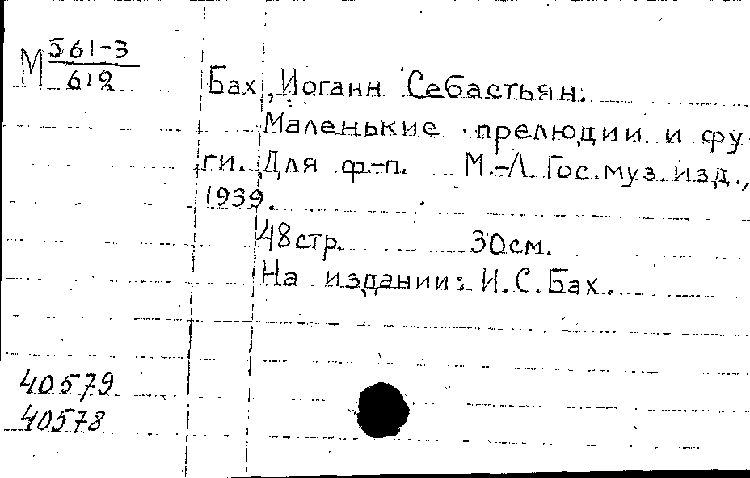 М 561-3
612
Бах, Иоганн Себастьян.
Маленькие прелюдии и фу-
ги. Для ф-п. М.-Л. Гос. муз. изд.,
1939.
48 стр. 30 см.
На издании: И. С. Бах.
40579
40578